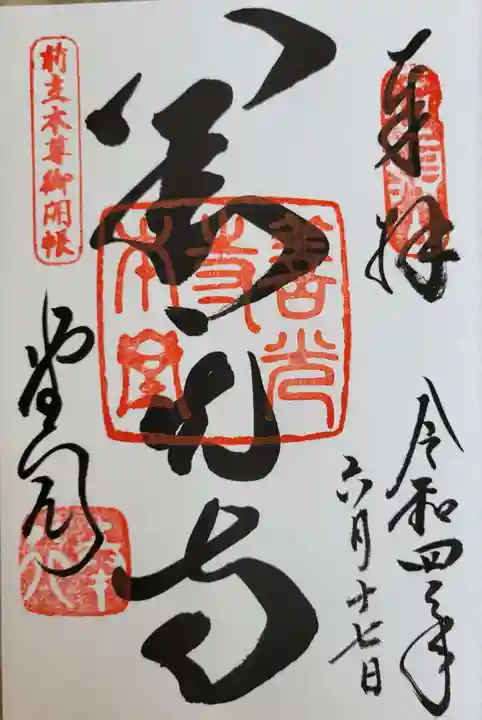 奉拝
令和四年
六月十七日
善光寺
善光
寺
本堂
前立本尊御開帳